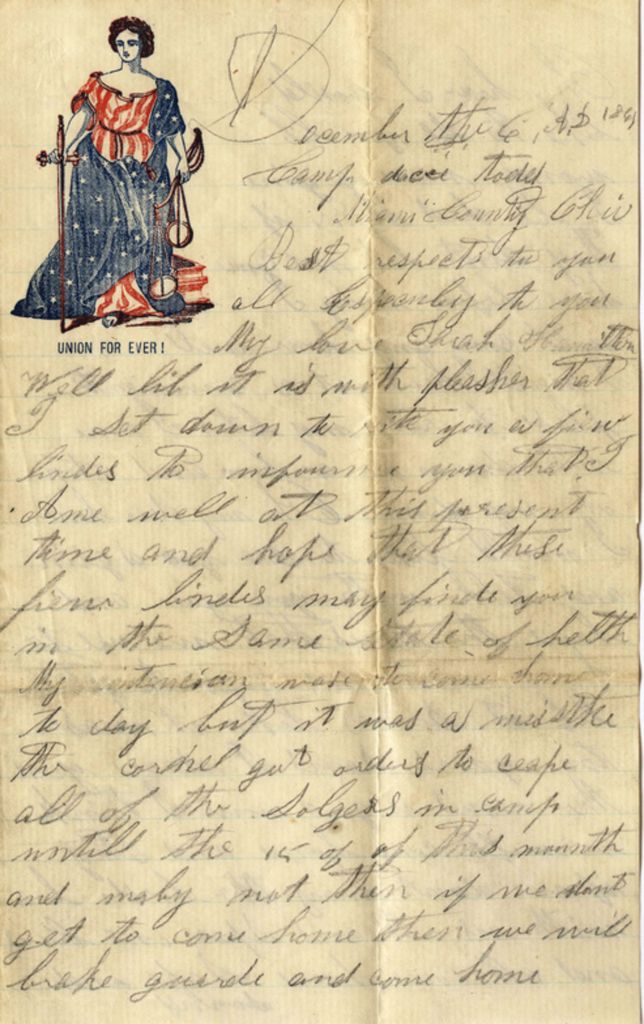 December the 6, AD 1861
Camp
Miami County Ohio
Best respects to you
all to you
My love Sarah
UNION FOR EVER!
Well lib it is with pleasher that
I set down to rite you a fiew
lindes to infourme you that I
Ame well at this present
time and hope that these
fiew lindes may finde you
in the Same State of helth
My was to come home
to day but it was a misstke
the cornel got orders to ceape
all of the Solgers in camp
untill the 15 of of this mounth
and maby not then if we dont
get to come home then we will
brake guarde and come home